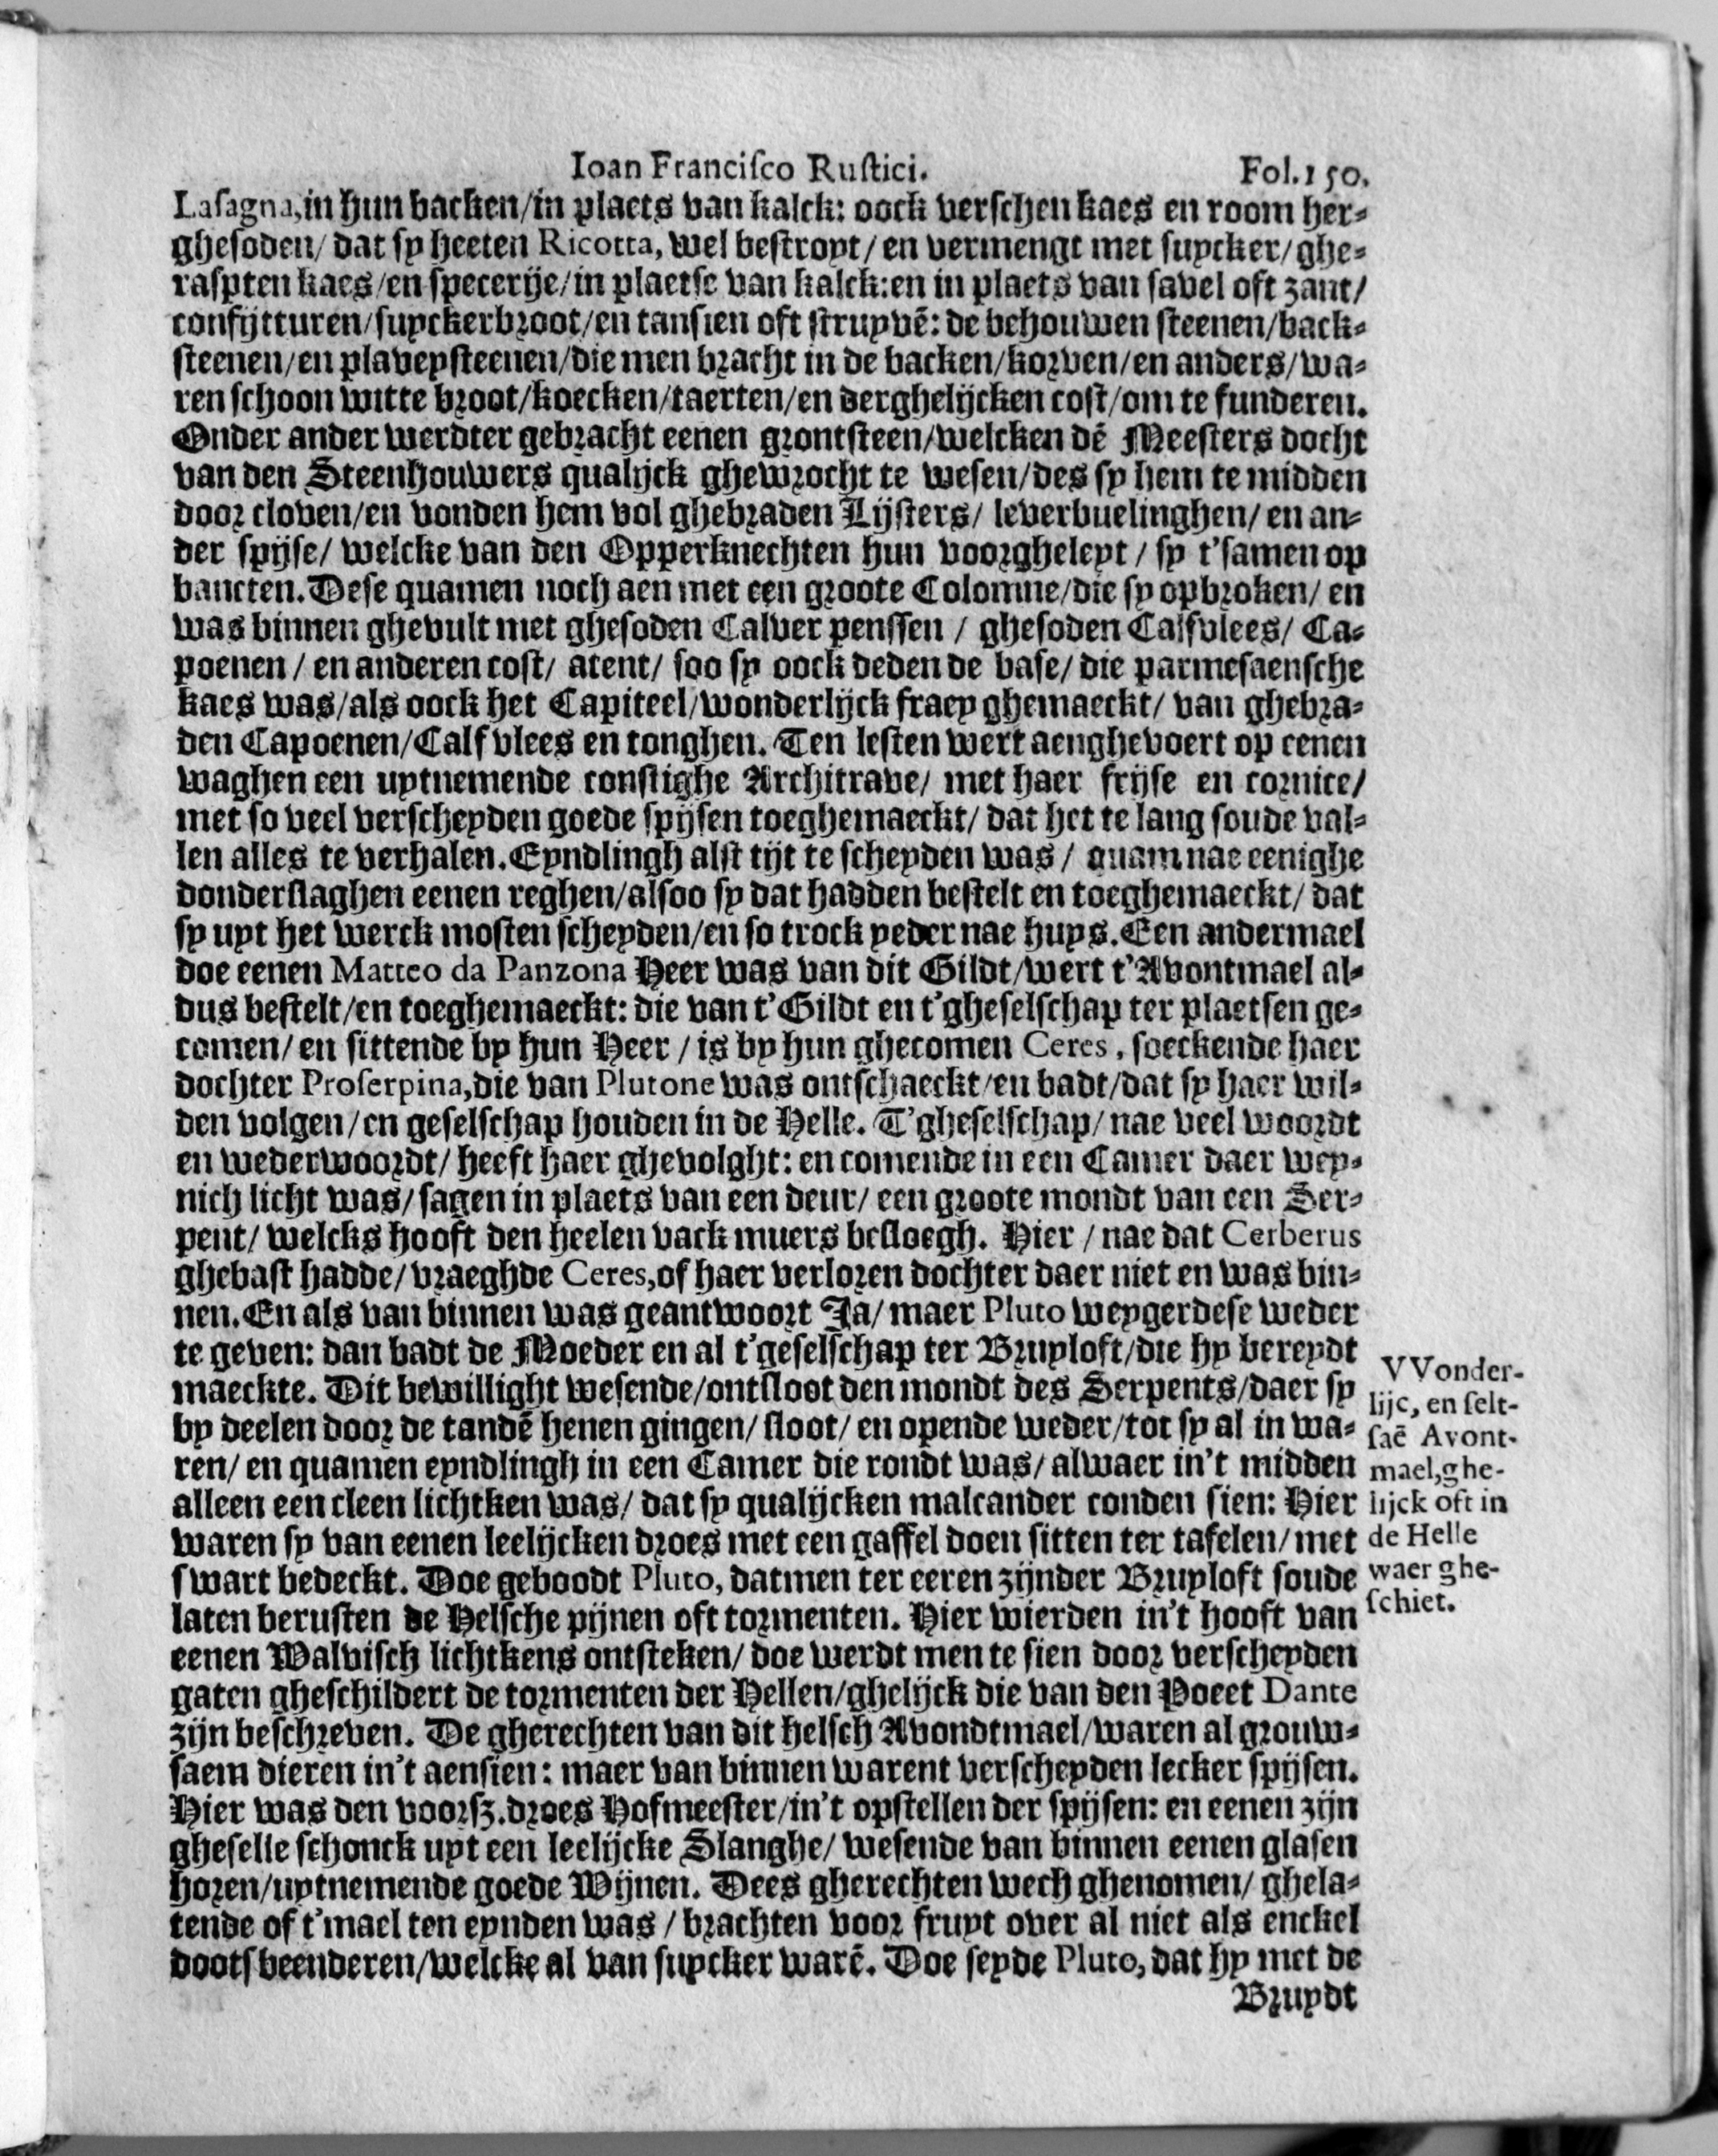 Ioan Francisco Rustici. Fol. 150.
Lasagna, in hun backen/in plaets van kalck: oock verschen kaes en room her-
ghesoden/ dat sy heeten Ricotta, wel bestroyt/ en vermengt met suycker/ ghe-
raspten kaes/en specerije/in plaetse van kalck: en in plaets van savel oft zant/
confijtturen/suyckerbroot/en tansien oft struyvē: de behouwen steenen/back-
steenen/en plaveysteenen/die men bracht in de backen/korven/en anders/wa-
ren schoon witte broot/koecken/taerten/en derghelijcken cost/om te funderen.
Onder ander werdter gebracht eenen grontsteen/welcken dē Meesters docht
van den Steenhouwers qualijck ghewrocht te wesen/des sy hem te midden
door cloven/en vonden hem vol ghebraden Lijsters/ leverbuelinghen/ en an-
der spijse/ welcke van den Opperknechten hun voorgheleyt / sy t'samen op
bancten. Dese quamen noch aen met een groote Colomne/die sy opbroken/ en
was binnen ghevult met ghesoden Calver penssen / ghesoden Calfvlees/ Ca-
poenen / en anderen cost/ atent/ soo sy oock deden de base/ die parmesaensche
kaes was/als oock het Capiteel/wonderlijck fraey ghemaeckt/ van ghebra-
den Capoenen/Calf vlees en tonghen. Ten lesten wert aenghevoert op eenen
waghen een uytnemende constighe Architrave/ met haer frijse en cornice/
met so veel verscheyden goede spijsen toeghemaeckt/ dat het te lang soude val-
len alles te verhalen. Eyndlingh alst tijt te scheyden was / quam nae eenighe
donderslaghen eenen reghen/alsoo sy dat hadden bestelt en toeghemaeckt/ dat
sy uyt het werck mosten scheyden/en so trock yeder nae huys. Een andermael
doe eenen Matteo da Panzona Heer was van dit Gildt/wert t'Avontmael al-
dus bestelt/en toeghemaeckt: die van t'Gildt en t'gheselschap ter plaetsen ge-
comen/ en sittende by hun Heer / is by hun ghecomen Ceres, soeckende haer
dochter Proserpina, die van Plutone was ontschaeckt/en badt/dat sy haer wil-
den volgen/en geselschap houden in de Helle. T'gheselschap/ nae veel woordt
en wederwoordt/ heeft haer ghevolght: en comende in een Camer daer wey-
nich licht was/ sagen in plaets van een deur/ een groote mondt van een Ser-
pent/ welcks hooft den heelen vack muers besloegh. Hier / nae dat Cerberus
ghebast hadde/ vraeghde Ceres, of haer verloren dochter daer niet en was bin-
nen. En als van binnen was geantwoort Ja/ maer Pluto weygerdese weder
te geven: dan badt de Moeder en al t'geselschap ter Bruyloft/die hy bereydt
maeckte. Dit bewillight wesende/ontsloot den mondt des Serpents/daer sy
by deelen door de tandē henen gingen/ sloot/ en opende weder/tot sy al in wa-
ren/ en quamen eyndlingh in een Camer die rondt was/ alwaer in't midden
alleen een cleen lichtken was/ dat sy qualijcken malcander conden sien: Hier
waren sy van eenen leelijcken droes met een gaffel doen sitten ter tafelen/ met
swart bedeckt. Doe geboodt Pluto, datmen ter eeren zijnder Bruyloft soude
laten berusten de Helsche pijnen oft tormenten. Hier wierden in't hooft van
eenen Walvisch lichtkens ontsteken/ doe werdt men te sien door verscheyden
gaten gheschildert de tormenten der Hellen/ghelijck die van den Poeet Dante
zijn beschreven. De gherechten van dit helsch Avondtmael/waren al grouw-
saem dieren in't aensien: maer van binnen warent verscheyden lecker spijsen.
Hier was den voorsz. droes Hofmeester/in't opstellen der spijsen: en eenen zijn
gheselle schonck uyt een leelijcke Slanghe/ wesende van binnen eenen glasen
horen/uytnemende goede Wijnen. Dees gherechten wech ghenomen/ ghela-
tende of t'mael ten eynden was / brachten voor fruyt over al niet als enckel
doots beenderen/welcke al van suycker warē. Doe seyde Pluto, dat hy met de
Bruydt
VVonder-
lijc, en selt-
saē Avont-
mael, ghe-
lijck oft in
de Helle
waer ghe-
schiet.